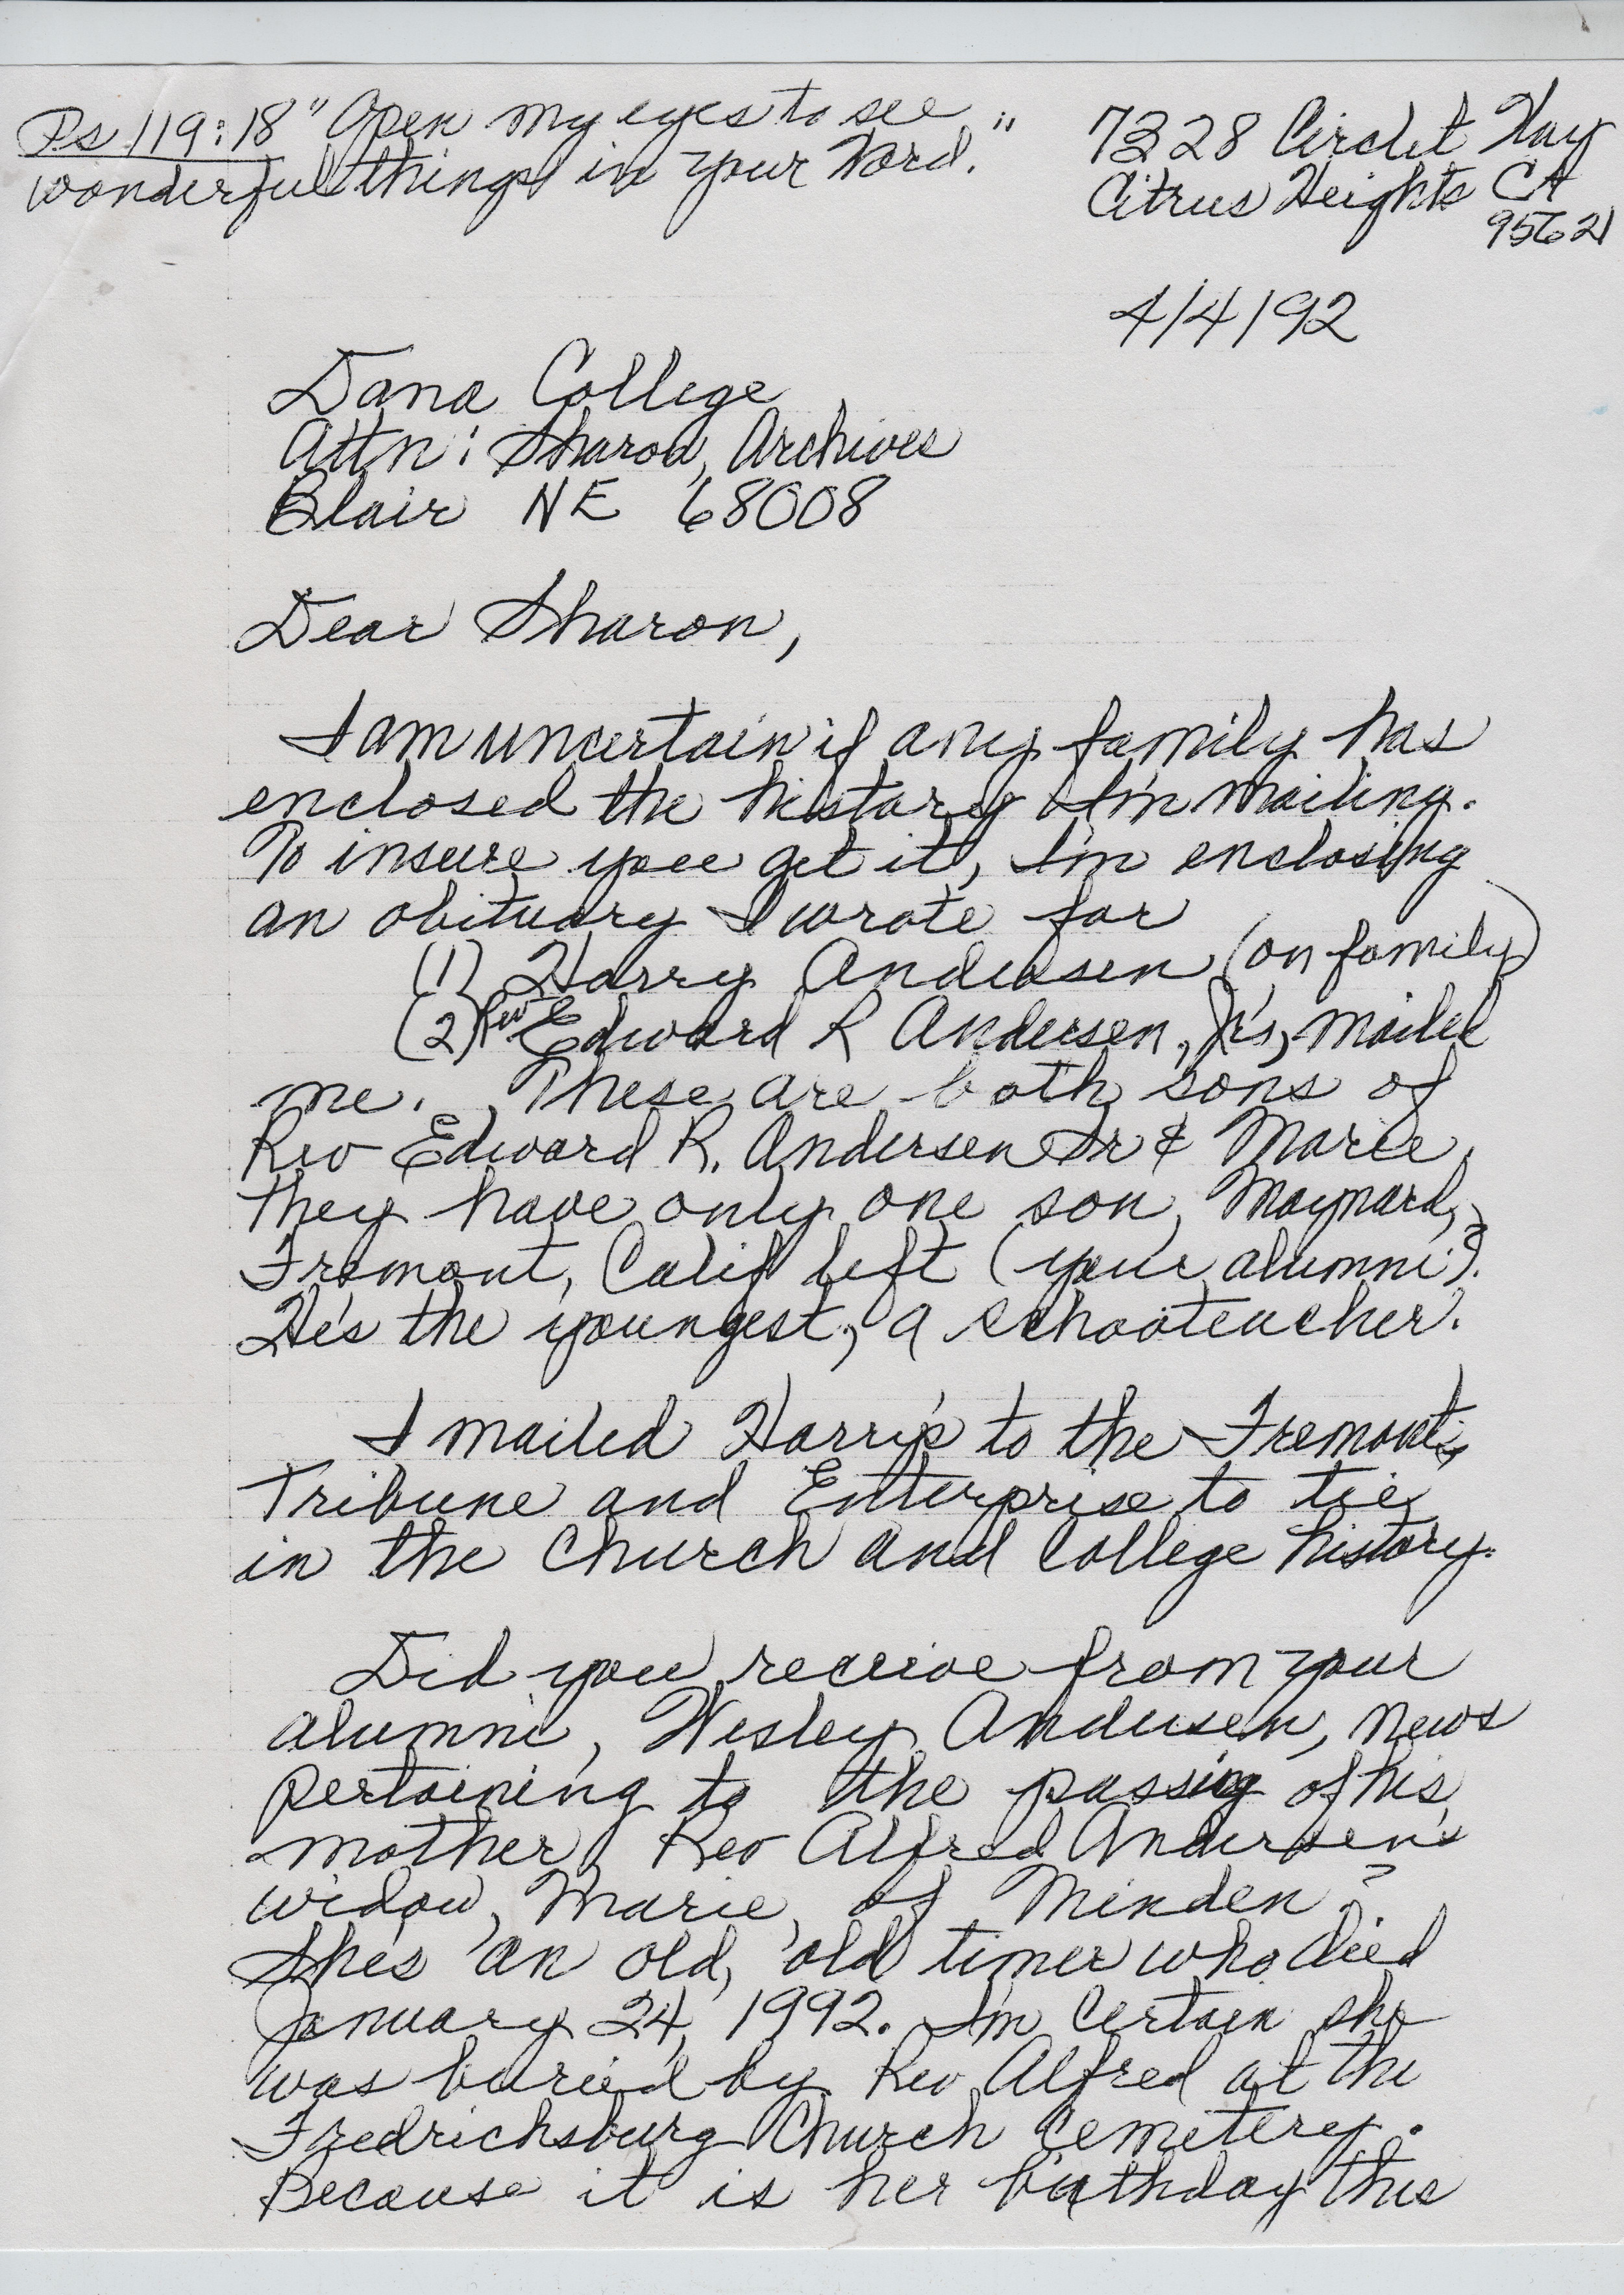 Ps 119:18 "Open my eyes to see
wonderful things in your Word."
7328 Circlet Way
Citrus Heights CA
95621
4/4/92
Dana College
Attn: Sharon, Archives
Blair NE 68008
Dear Sharon,
I am uncertain if any family has
enclosed the history I'm mailing.
To insure you get it, I'm enclosing
an obituary I wrote for
(1) Harry Andersen (on family)
(2) Rev Edward R Andersen, Jr's, mailed
me. These are both sons of
Rev Edward R. Andersen Sr & Marie.
They have only one son, Maynard,
Fremont, Calif left (your alumni?).
He's the youngest, a schoolteacher.
I mailed Harry's to the Fremont
Tribune and Enterprise to tie
in the Church and College history.
Did you receive from your
alumni, Wesley Andersen, news
pertaining to the passing of his
mother, Rev Alfred Andersen's
widow, Marie, of Minden?
She's an old, old timer who died
January 24, 1992. I'm certain she
was buried by Rev Alfred at the
Fredricksburg Church Cemetery.
Because it is her birthday this